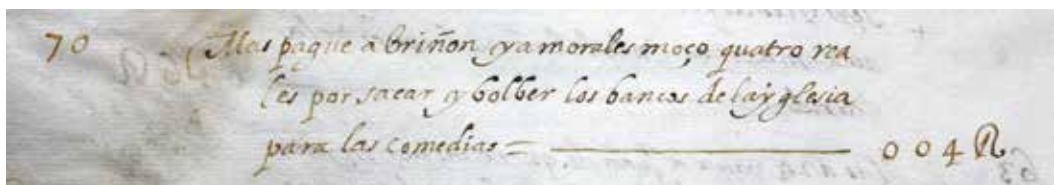 70 Mas pague a briñon y a morales moço quatro rea
les por sacar y bolber los bancos de la yglesia
para las comedias = 004 R